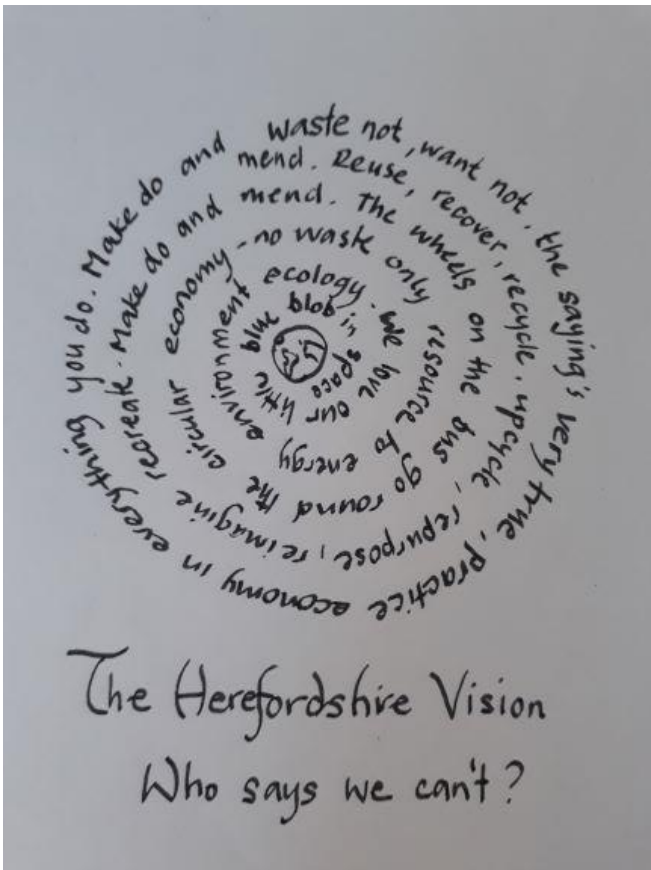 waste not, want not, the saying's very true, practice economy in everything you do. Make do and
mend. Reuse, recover, recycle. upcycle, repurpose, reimagine recreate. Make do and
mend. The wheels on the bus go round the circular economy - no waste only resource to energy
environment ecology. We love our little
blue blob in space
The Herefordshire Vision
Who says we can't?